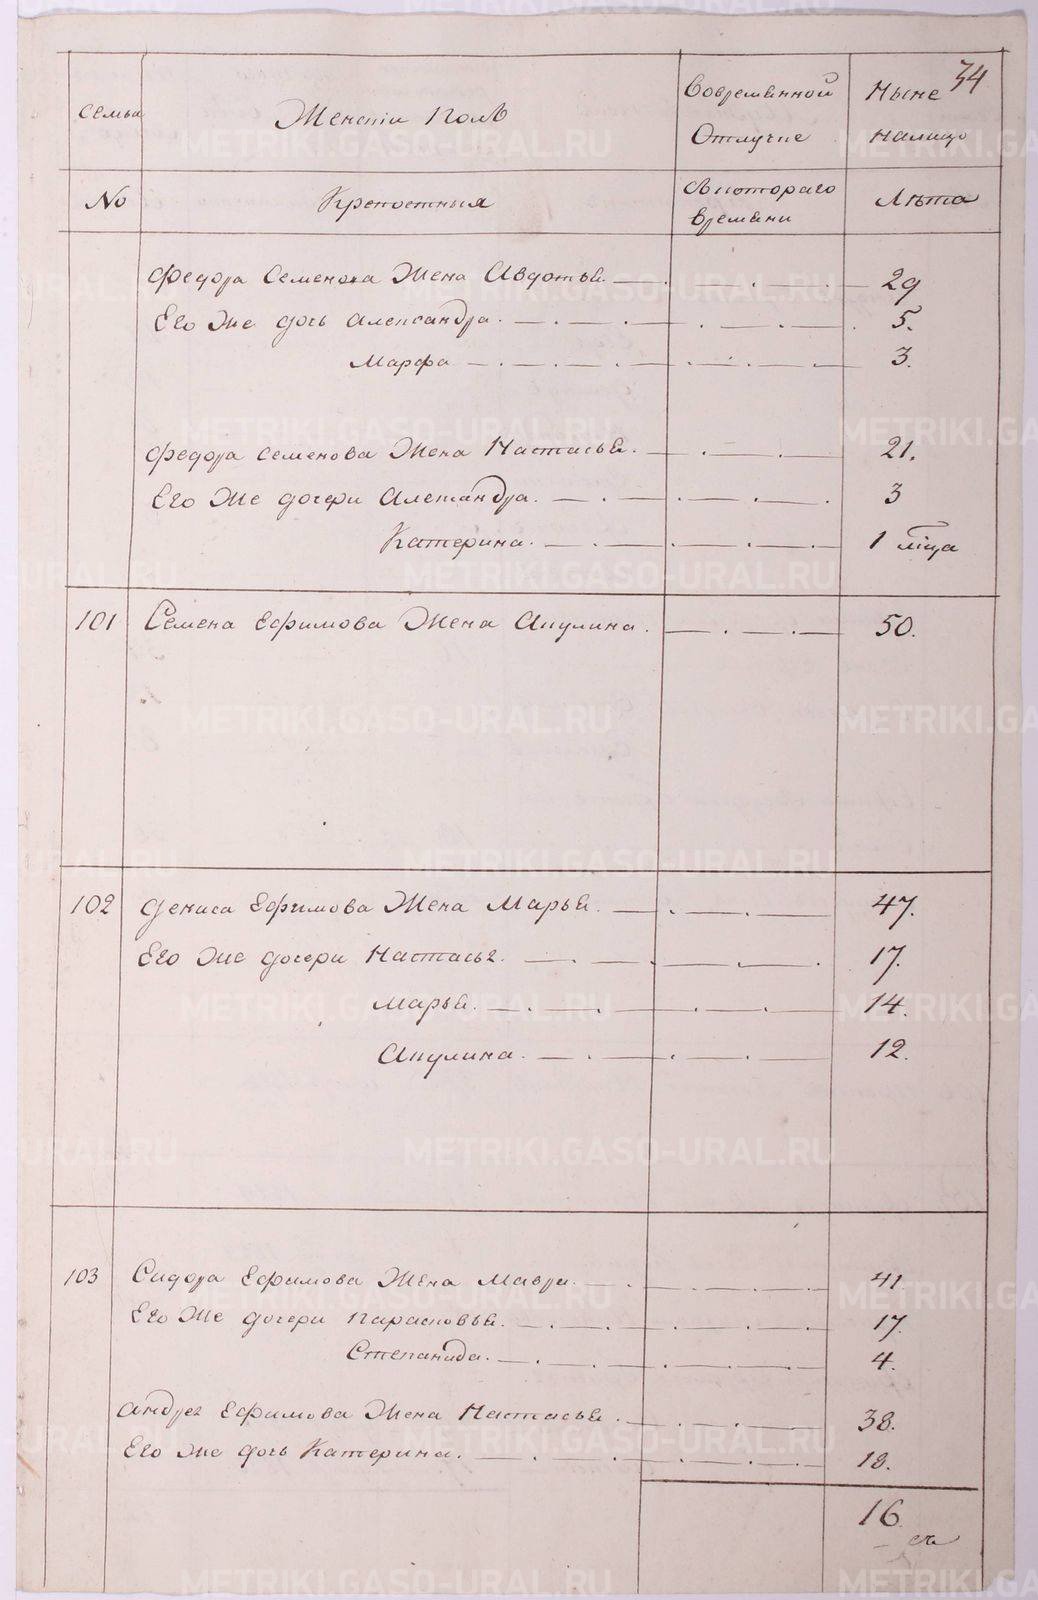 34
семьи Женскiй Полъ Вовременной Отлучке Ныне налицо
No Крепостныя Скотораго времени Лѣта
Федора Семенова Жена Авдотья. 29
Его Же дочь Александра. 5.
Марфа 3.
Федора Семенова Жена Настасья. 21.
Его Же дочери Александра. 3
Катерина. 1 мѣца
101 Семена Ефимова Жена Акулина. 50.
102 Дениса Ефимова Жена Марья. 47.
Его Же дочери Настасья. 17.
Марья. 14.
Акулина. 12.
103 Сидора Ефимова Жена Мавра. 41.
Его Же дочери Парасковья. 17.
Степанида. 4.
Андрея Ефимова Жена Настасья. 38.
Его Же дочь Катерина. 18.
16
METRIKI.GASO-URAL.RU